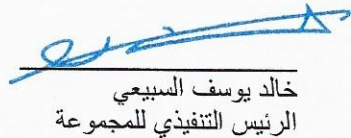 خالد يوسف السبيعي
الرئيس التنفيذي للمجموعة